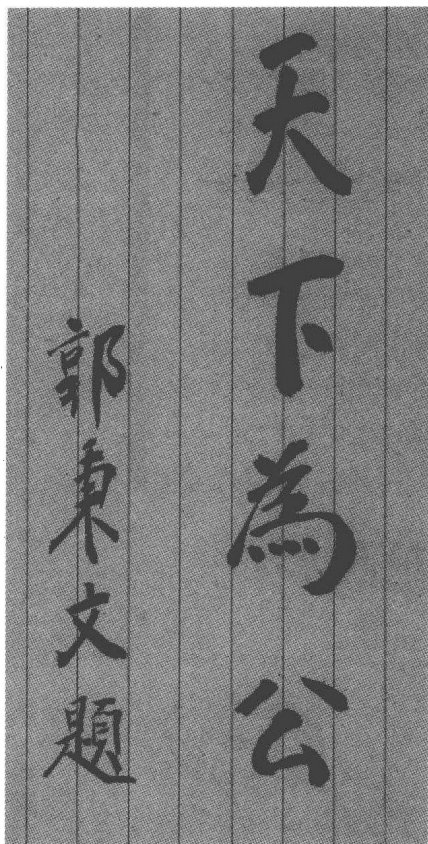 天下為公
郭秉文題